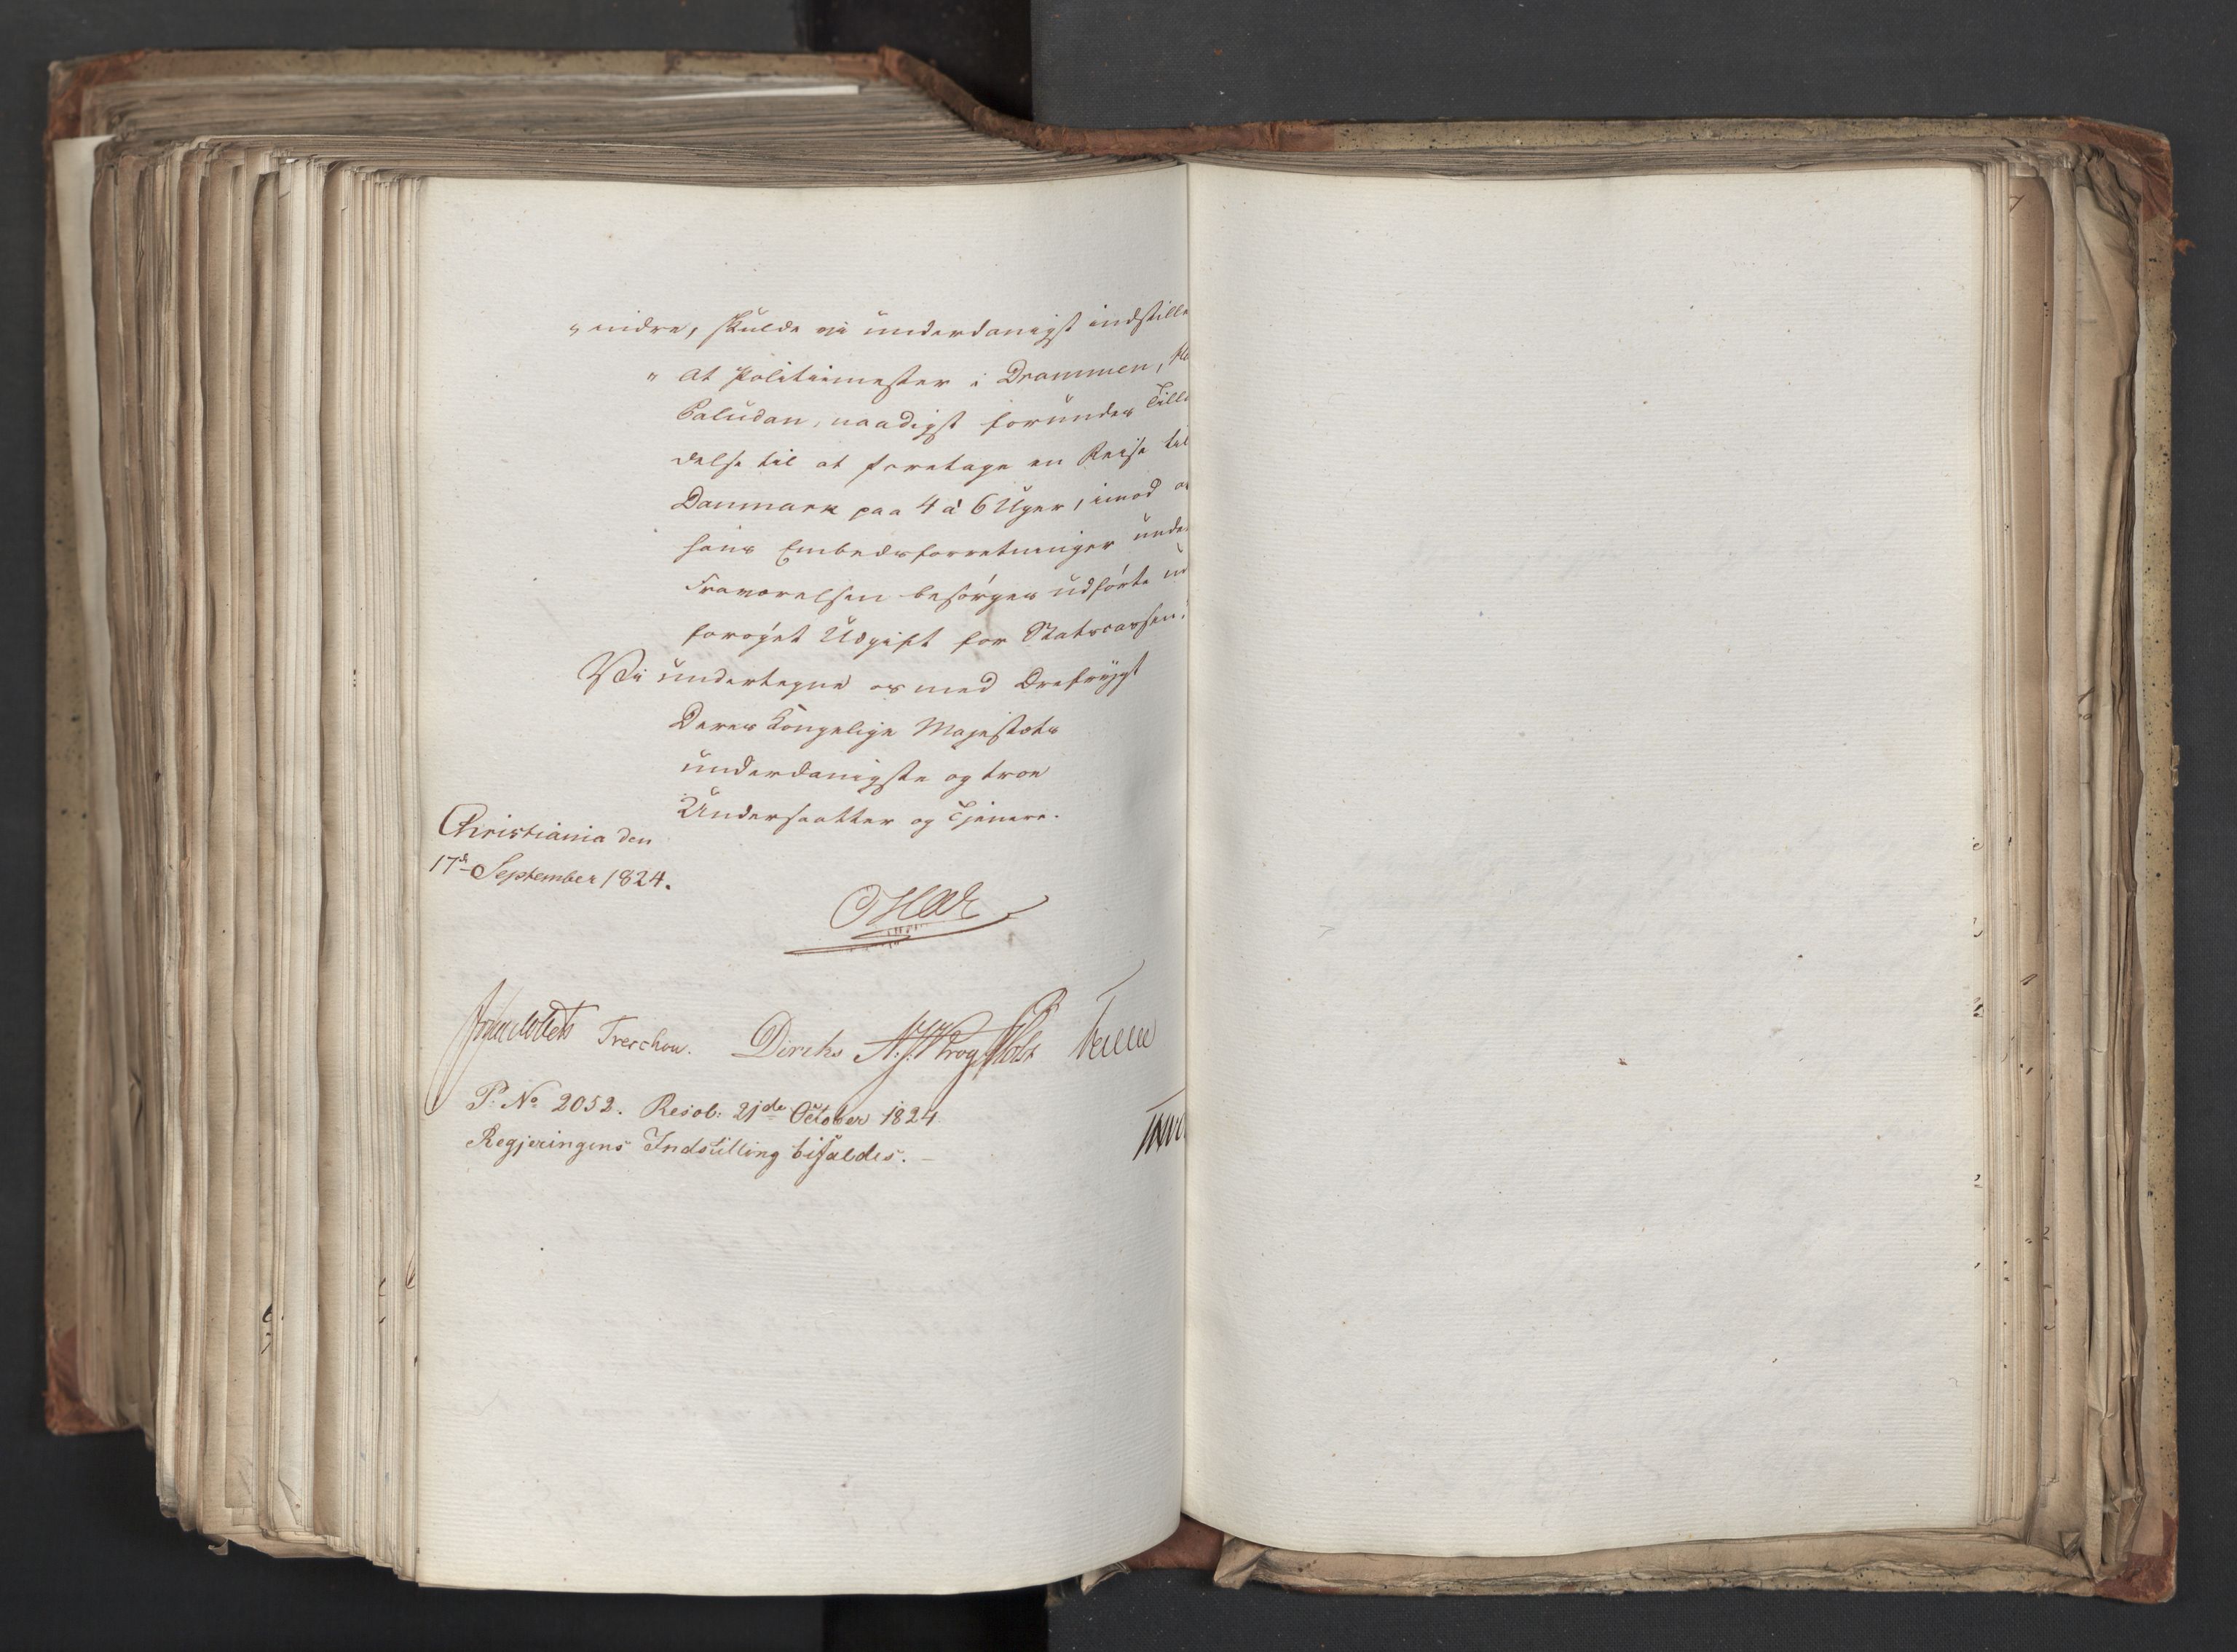 " indre, skulde vi underdanigst indstille
" At Politiemester i Drammen,
Paludan, naadigst forundes Tilla
delse til at foretage en Reise til
Danmark paa 4 a 6 Uger, imod at
hans Embedsforretninger under
Fraværelsen besørges udførte
forøget Udgift for Statscassen.
Vi undertegne os med Ærefrygt
Deres Kongelige Majestæts
underdanigste og troe
Undersaatter og Tjenere.
Christiania den
17de September 1824.
Treschow. Diriks Holst
P. No 2052. Resol: 21de October 1824.
Regjeringens Indstilling bifaldes.